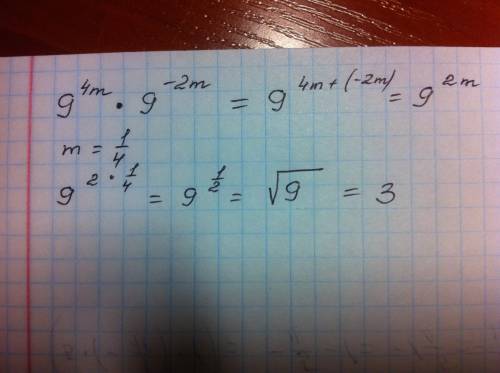 9^{4m} · 9^{-2m} = 9^{4m+(-2m)} = 9^{2m}
m = \frac{1}{4}
9^{2·\frac{1}{4}} = 9^{\frac{1}{2}} = √9 = 3